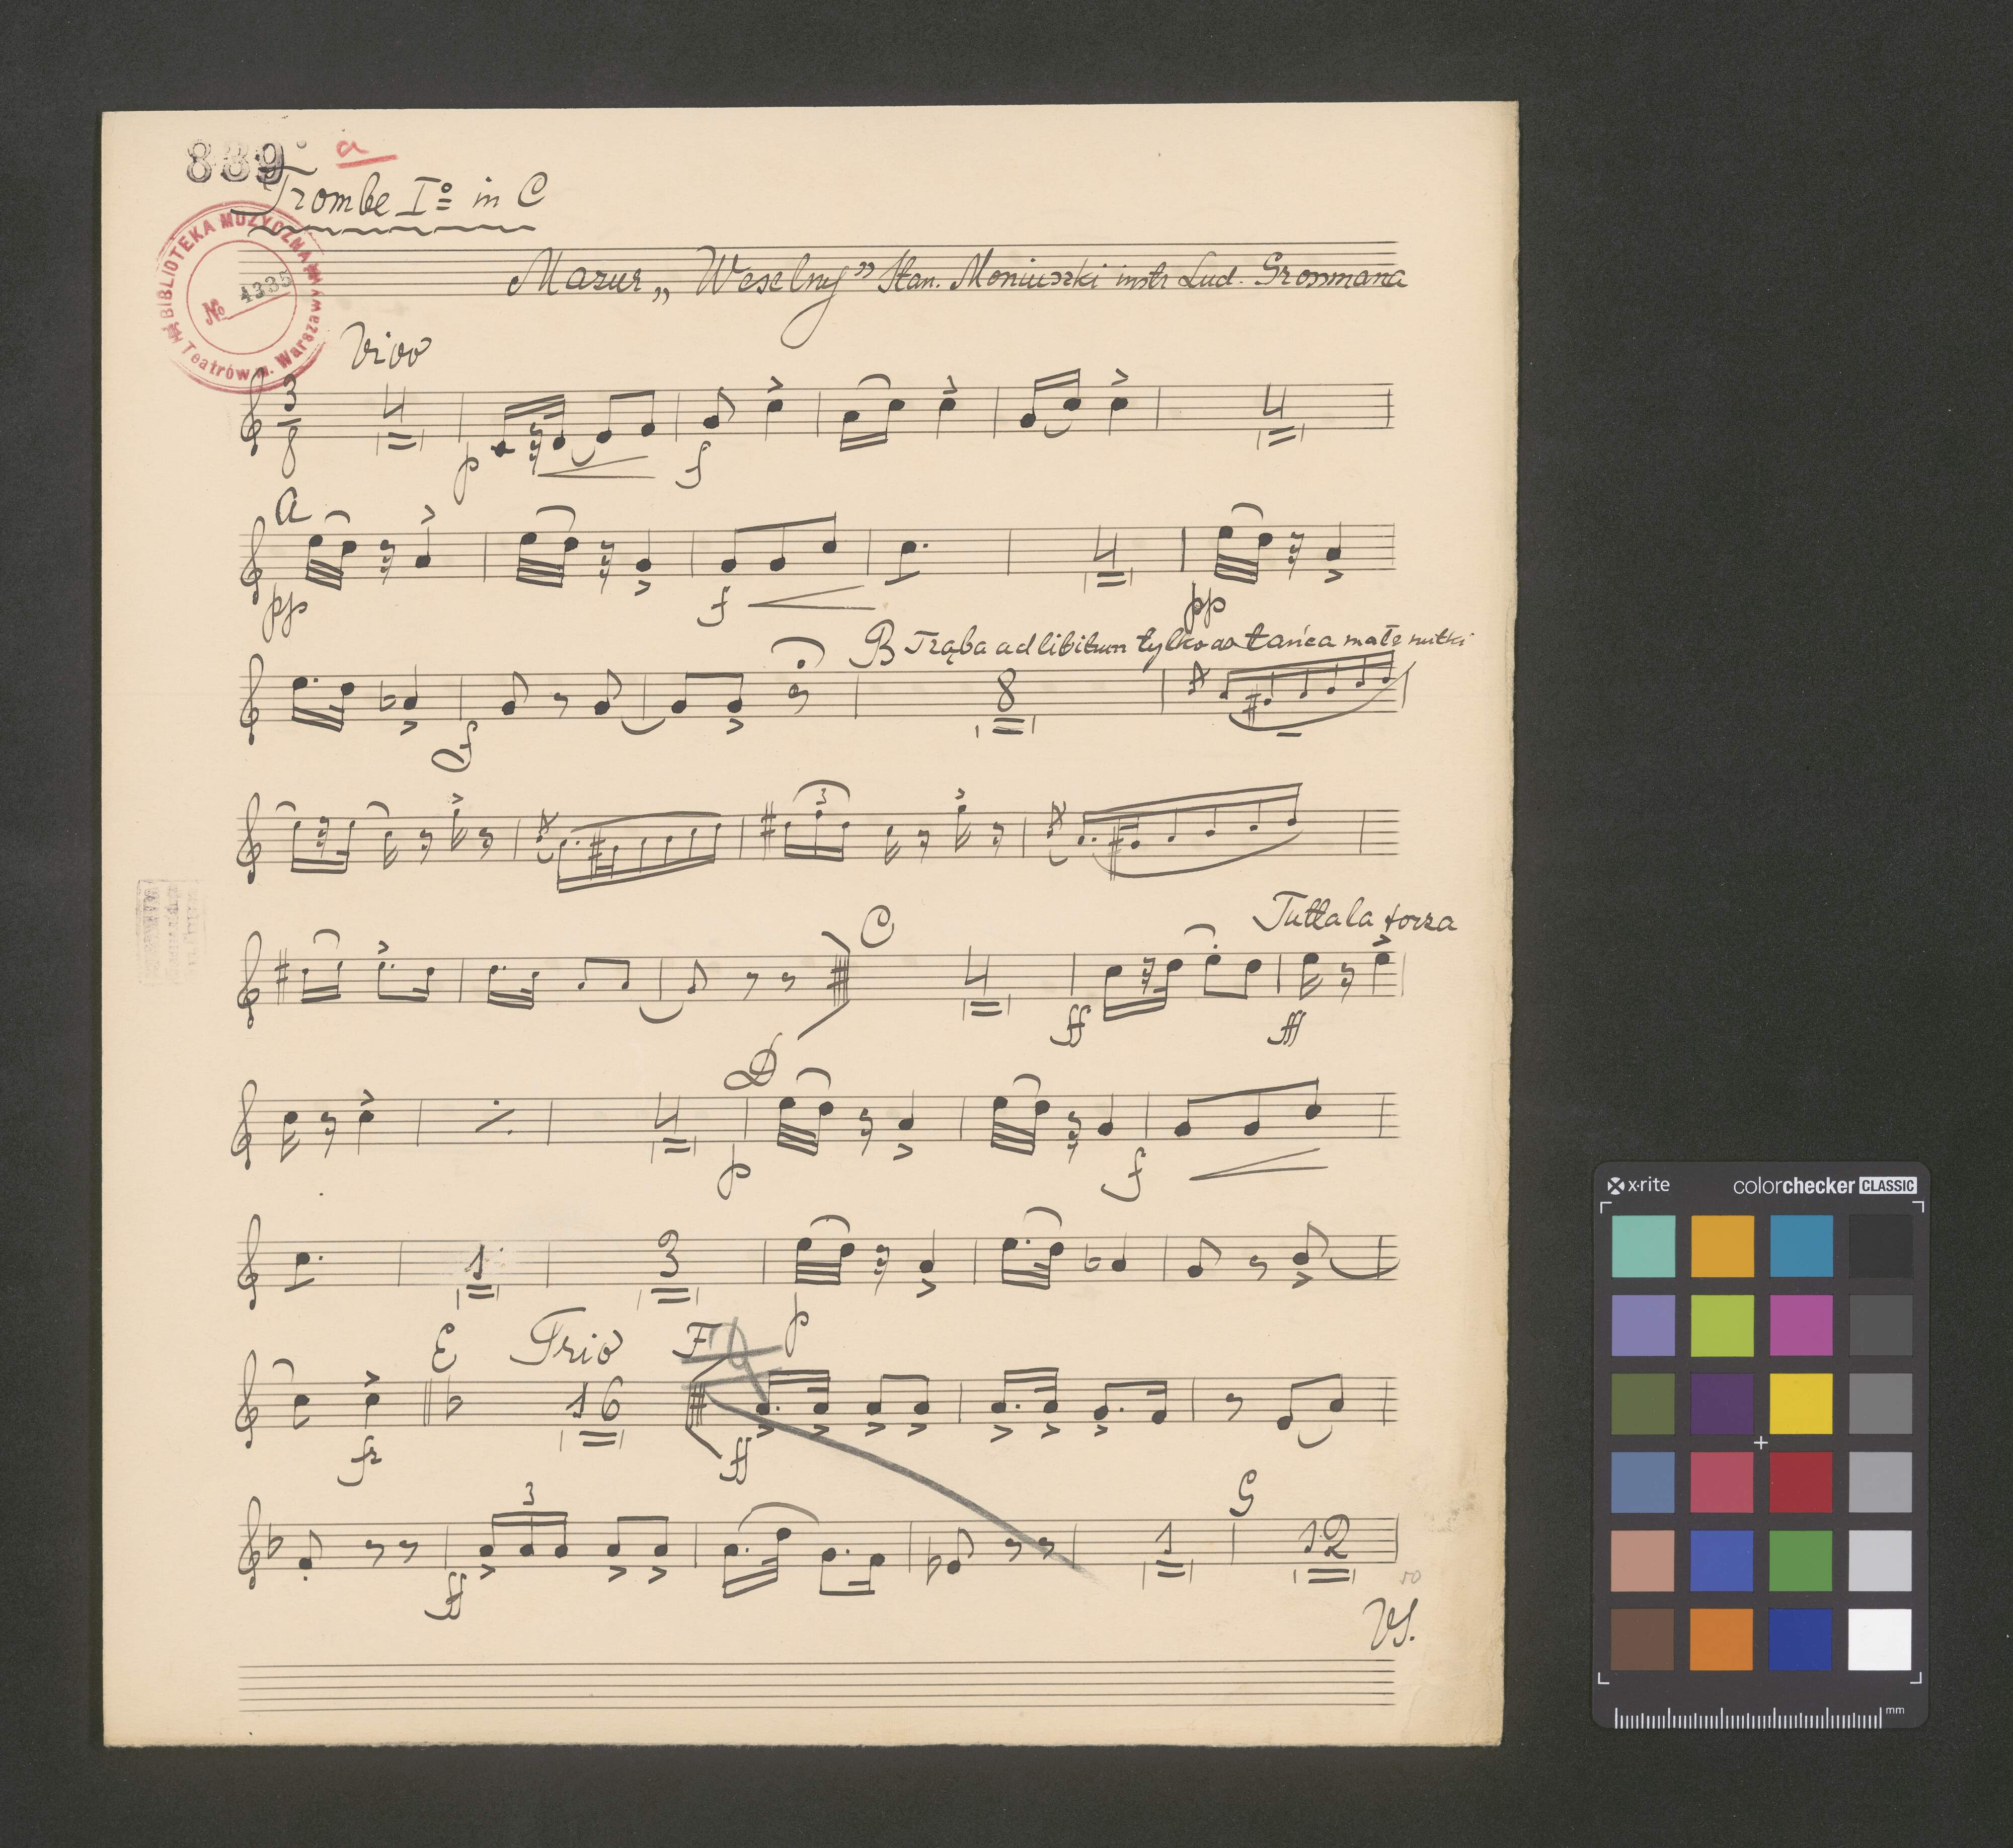 889 a
Trombe Iº in C
BIBLIOTEKA MUZYCZNA
Teatrów m. Warszawy
№ 4335
Mazur „Weselny” Stan. Moniuszki instr Lud. Grossmana
Vivo
3
8
4
4
p
f
A
4
pp
f
pp
B Trąba ad libitum tylko do tańca małe nutki
8
3
C
Tutta la forza
4
ff
fff
D
4
p
f
1
3
p
E Trio F
16
ff
G
3
1
12
ff
VS.
x-rite colorchecker CLASSIC
mm